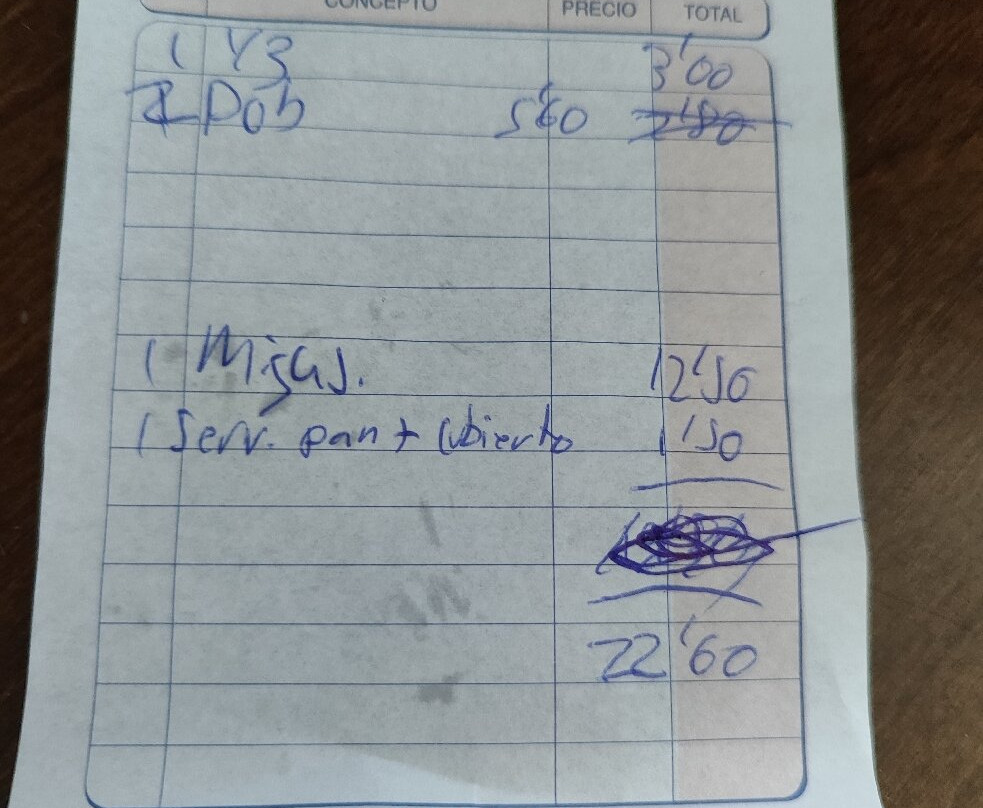 CONCEPTO PRECIO TOTAL
1 Y3 3'00
2 Dob 5'60 2'80
1 Migas. 12'50
1 Serv. pan + cubierto 1'50
22'60